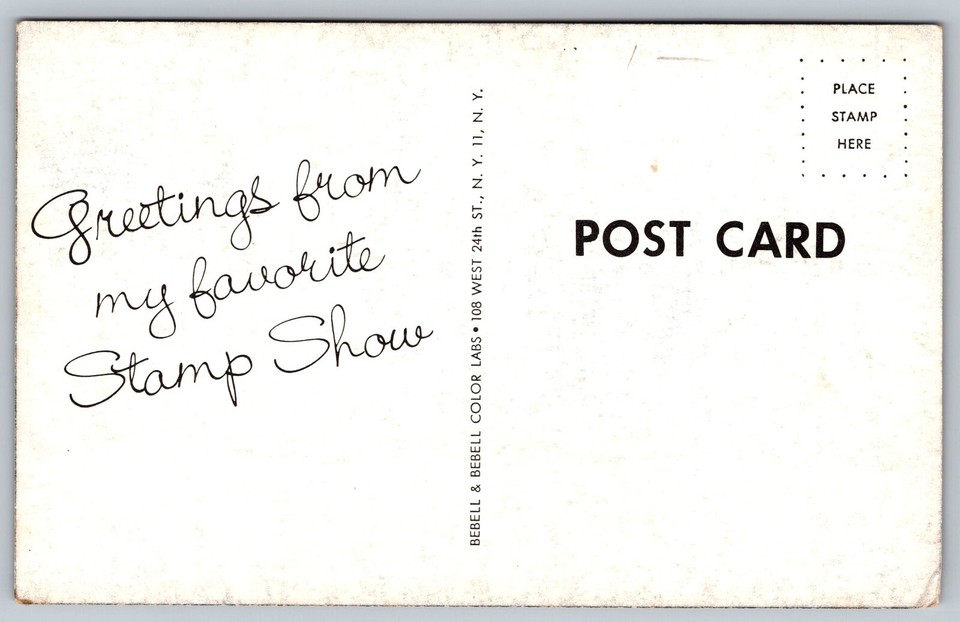 Greetings from
my favorite
Stamp Show
BEBELL & BEBELL COLOR LABS • 108 WEST 24th ST., N. Y. 11, N. Y.
PLACE
STAMP
HERE
POST CARD